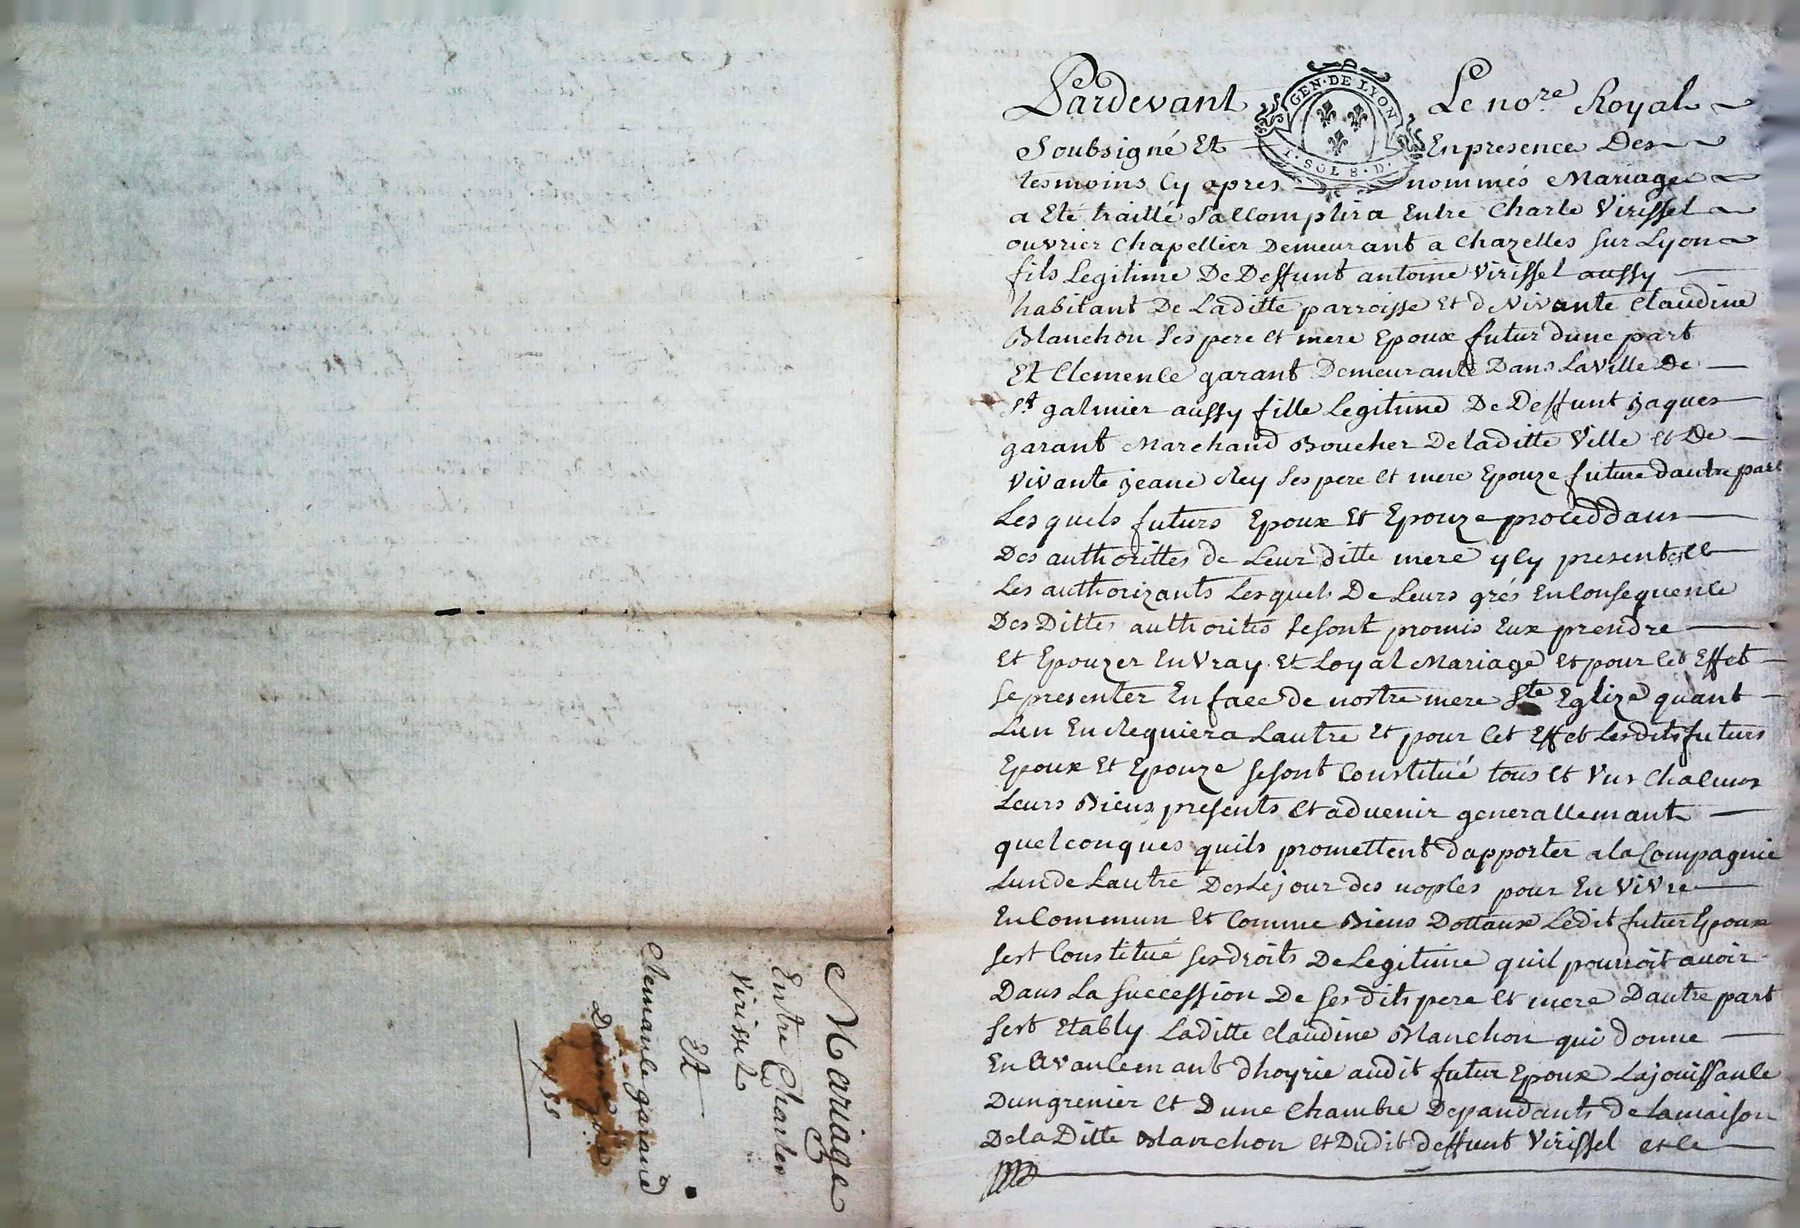 Mariage
Entre Charles
Virissel
Et
Clemance garand
1755
GEN·DE LYON
1·SOL 8·D
Pardevant Le no.re Royal
Soubsigné Et En presence Des
tesmoins Cy apres nommés Mariage
a Eté traitté Saccomplira Entre Charle Virissel
ouvrier Chapellier Demeurant a Chazelles sur Lyon
fils Legitime De Deffunt antoine Virissel aussy
habitant De Laditte parroisse et de Vivante Claudine
Blanchon Ses pere et mere Epoux futur dune part
Et Clemence garant Demeurante Dans La Ville De
St galmier aussy fille Legitime De Deffunt jaques
garant Marchand Boucher De laditte Ville et De
Vivante jeane Rey Ses pere et mere Epouze future dautre part
Lesquels futurs Epoux Et Epouze proceddans
Des authorittes de Leur ditte mere ycy presentes et
Les authorizants Lesquels De Leurs grés En Consequence
Des Dittes authorites se sont promis Eux prendre
et Epouzer En Vray et Loyal Mariage et pour cet Effet
Se presenter En face de nostre mere Ste Eglize quant
Lun En Requiera Lautre et pour cet Effet Lesdits futurs
Epoux et Epouze se sont Constitué tous et Vns Chacuns
Leurs Biens presents et advenir generallemant
quelconques quils promettent dapporter a la Compagnie
Lun de Lautre Des Le jour des nopces pour En Vivre
En Commun et Comme Biens Dottaux Ledit futur Epoux
sest Constitué ses droits De Legitime quil pourroit avoir
Dans La Succession De ses dits pere et mere Dautre part
sest Etably Laditte Claudine Blanchon qui donne
En avancemant dhoyrie audit futur Epoux La jouissance
Dun grenier et Dune Chambre Depandants de la maison
De la Ditte Blanchon et Dudit deffunt Virissel et ce